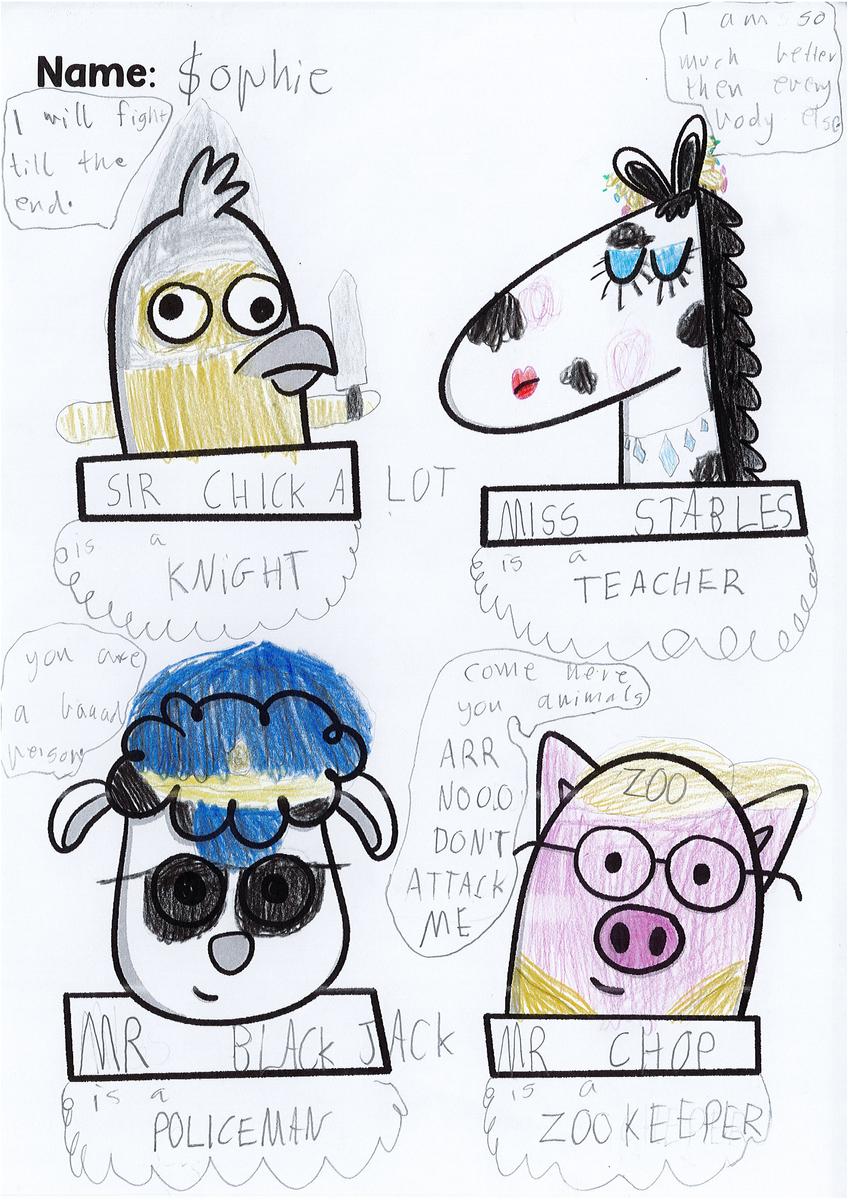 Name: Sophie
I will fight
till the
end.
I am so
much better
then every
body else
SIR CHICK A LOT
is a
KNIGHT
MISS STABLES
is a
TEACHER
you are
a baaad
person
come here
you animals
ARR
NOOO
DON'T
ATTACK
ME
ZOO
MR BLACK JACK
is a
POLICEMAN
MR CHOP
is a
ZOO KEEPER